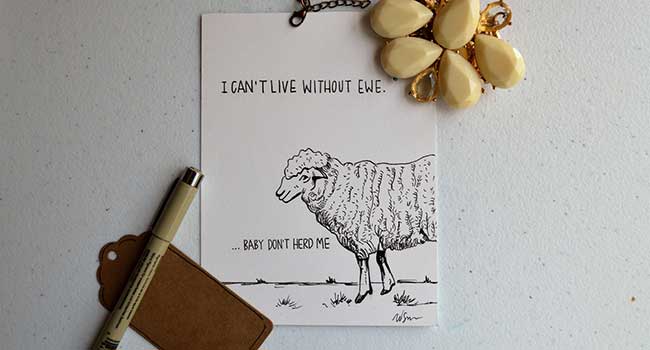 I CAN'T LIVE WITHOUT EWE.
... BABY DON'T HERD ME